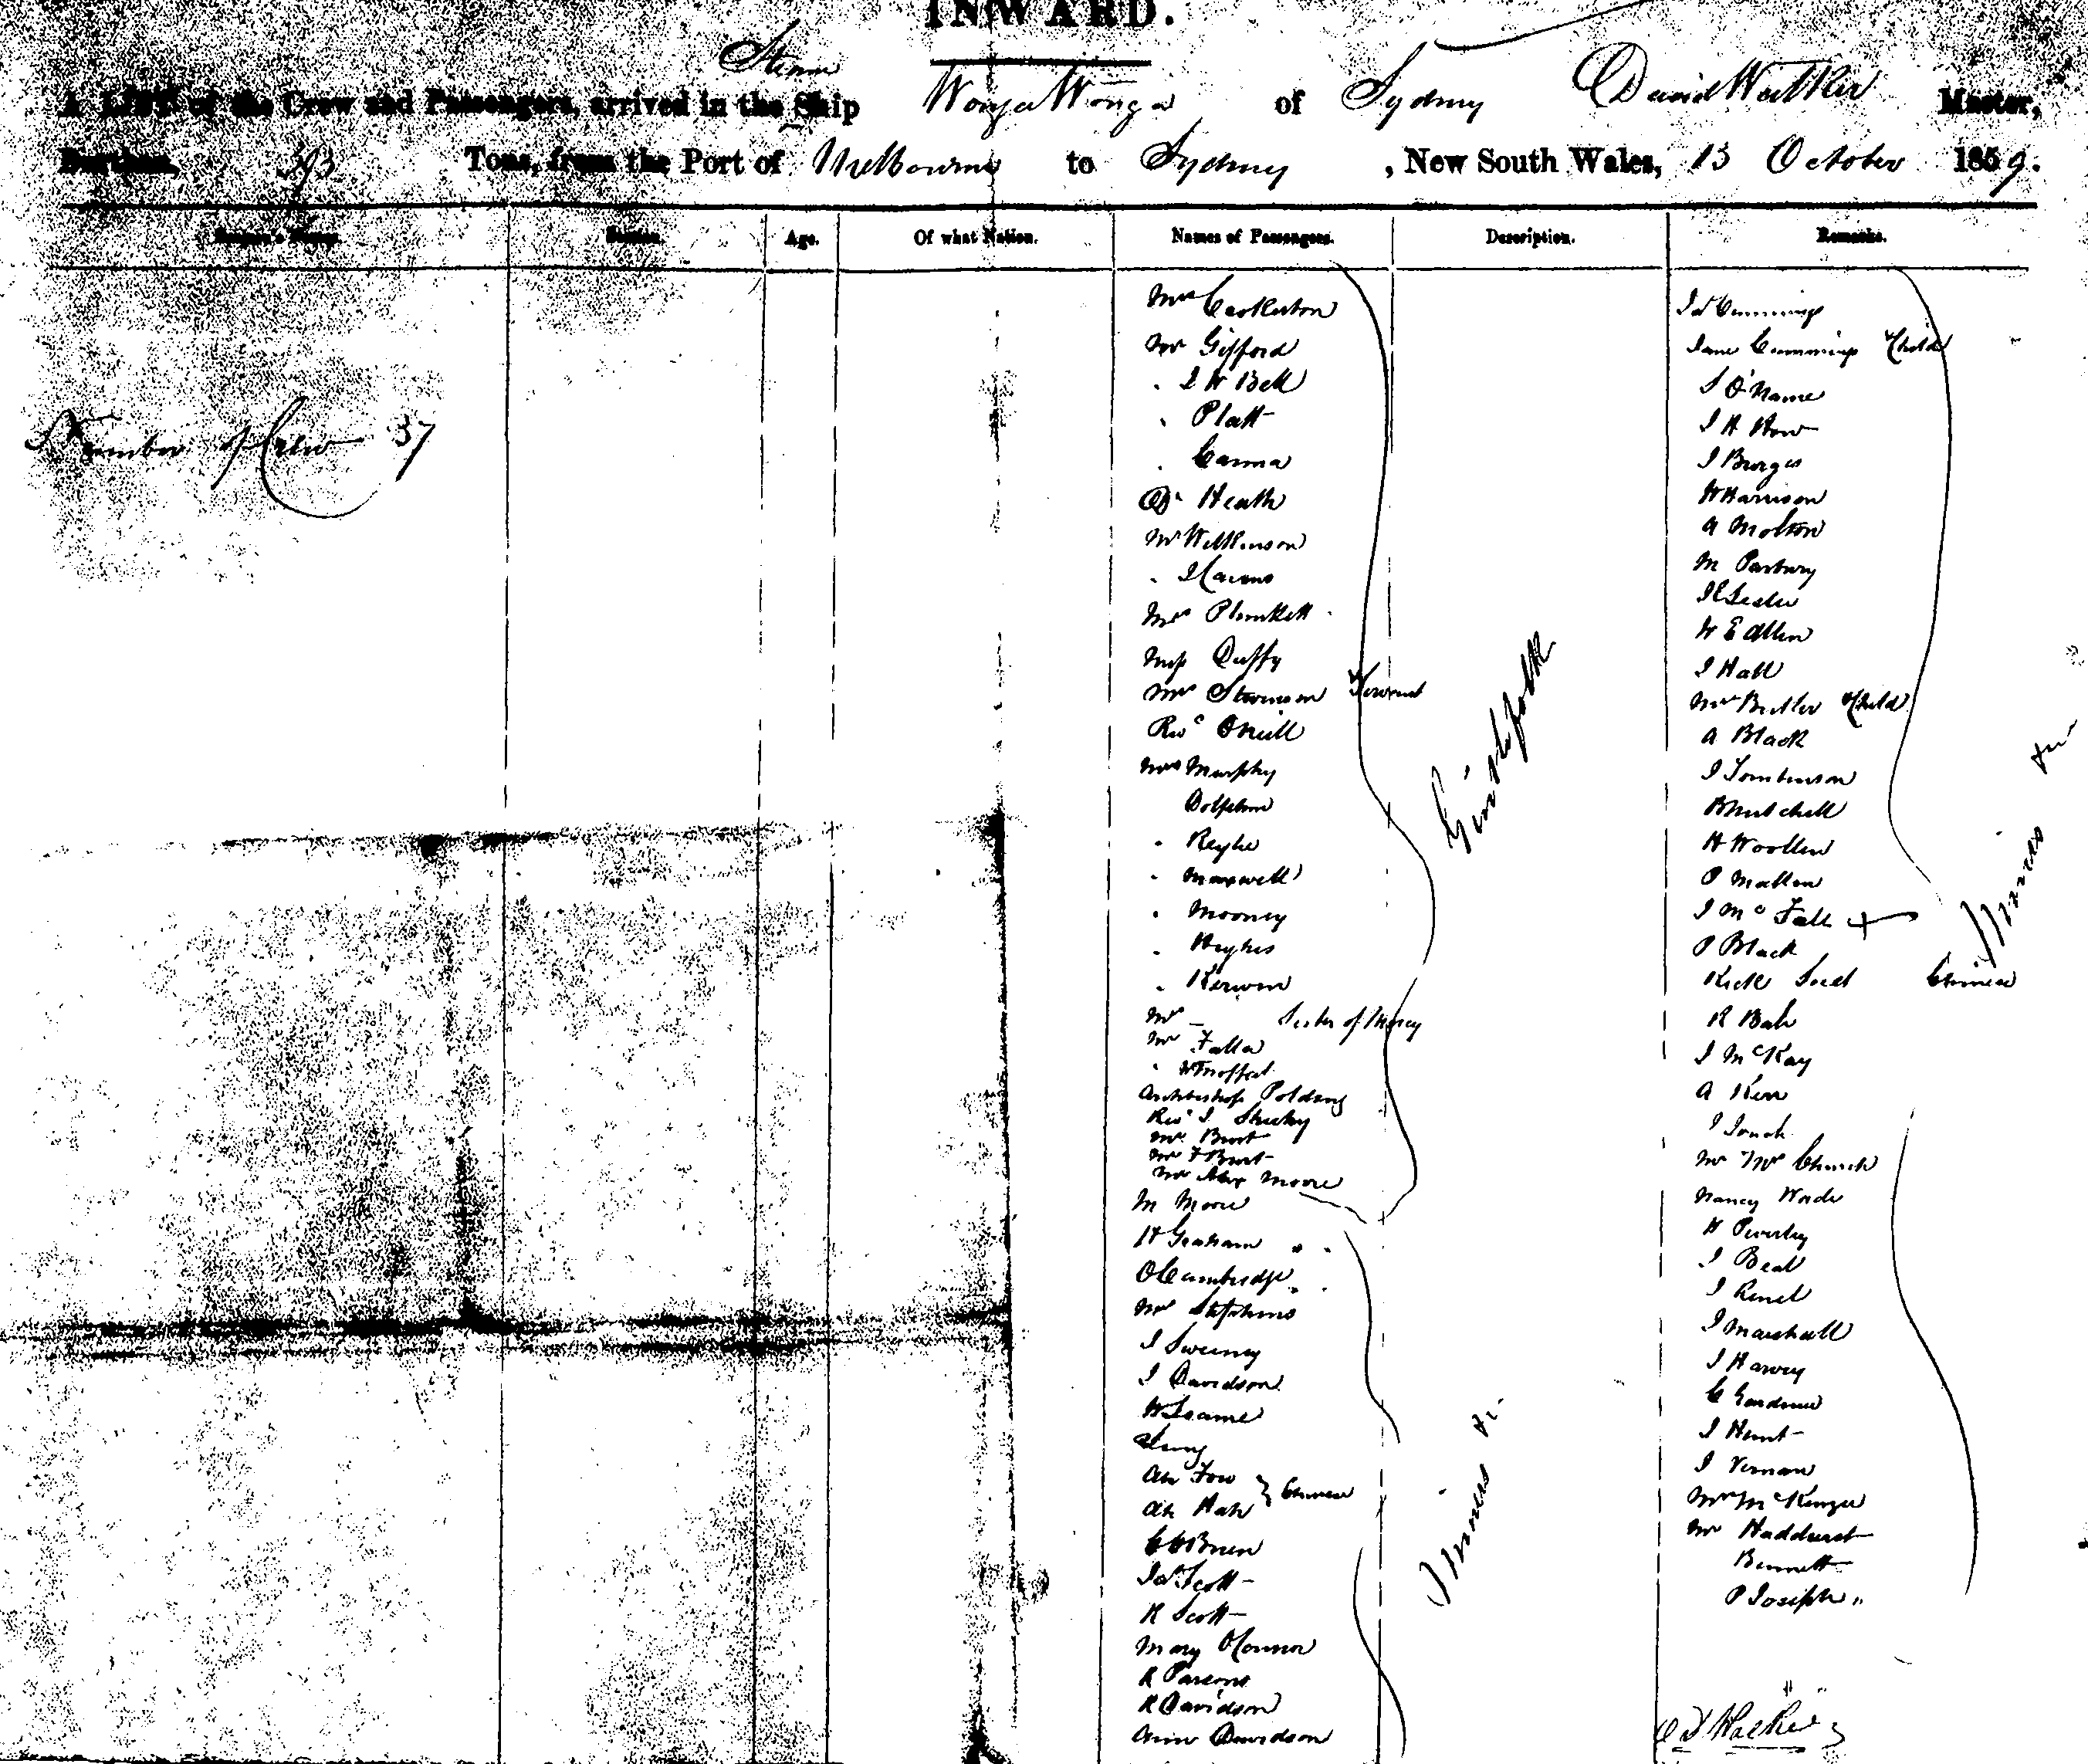 INWARD.
Steam
A LIST of the Crew and Passengers, arrived in the Ship Wonga Wonga of Sydney David Walker Master,
Burthen, 593 Tons, from the Port of Melbourne to Sydney, New South Wales, 13 October 1859.
Names. Station. Age. Of what Nation. Names of Passengers. Description. Remarks.
Number of Crew 37
Mrs Castleton
Mr Gifford
" J W Bell
" Platt
" Canna
Dr Heath
Mr Wilkinson
" J Cairns
Mrs Plunkett
Miss Duffy
Mrs Stevenson & Servant
Revd O'Neill
Mrs Murphy
Dolphin
" Keyhe
" Maxwell
" Mooney
" Hughes
" Kerwin
Mrs Sister of Mercy
Mr Falla
" W Moffat
Archbishop Polding
Revd J Sheehy
Mr Burt
Mr F Burt
Mr Alex Moore
M Moore
H Graham
O Cambridge
Mrs Stephens
J Sweeney
J Davidson
Ah Fow
Ah Hah } Chinese
C O'Brien
Jas Scott
R Scott
Mary O'Connor
R Parsons
R Davidson
Ann Davidson
Jas Cummings
Jane Cummings & Child
J H How
J Burges
W Harrison
A Molton
M Parbury
J E Leslie
W E Allen
J Hall
Mrs Butler & Child
A Black
J Tomlinson
B Mitchell
H Woollen
P Mallen
J McFall
P Black
Chinese
R Bah
J McKay
A Kerr
Mr & Mrs Church
Nancy Wade
H Peverley
J Beal
J Marshall
J Harvey
C Gardner
J Hunt
J Vernan
Mrs McKenzie
Mr Haddurst
Bennett
P Joseph
D Walker